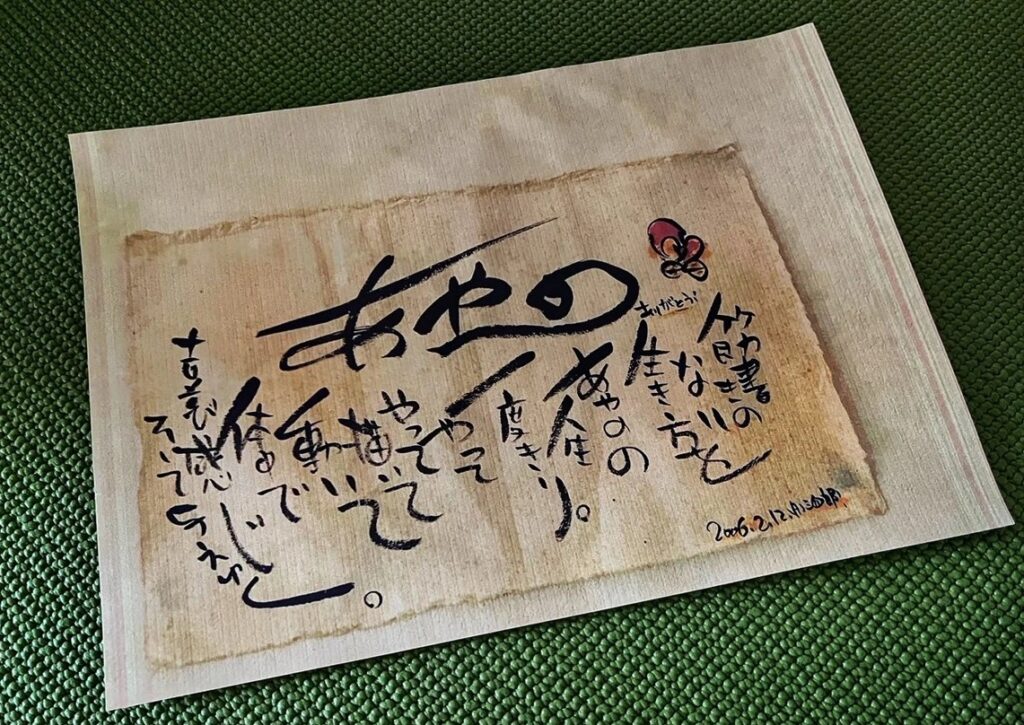 あやの
ありがとう!
筋書きの
ない
生き方を
あやのの
人生
一度きり。
やって
やって
描いて
動いて
体で
感じ
喜び
そして
2006.2.12.